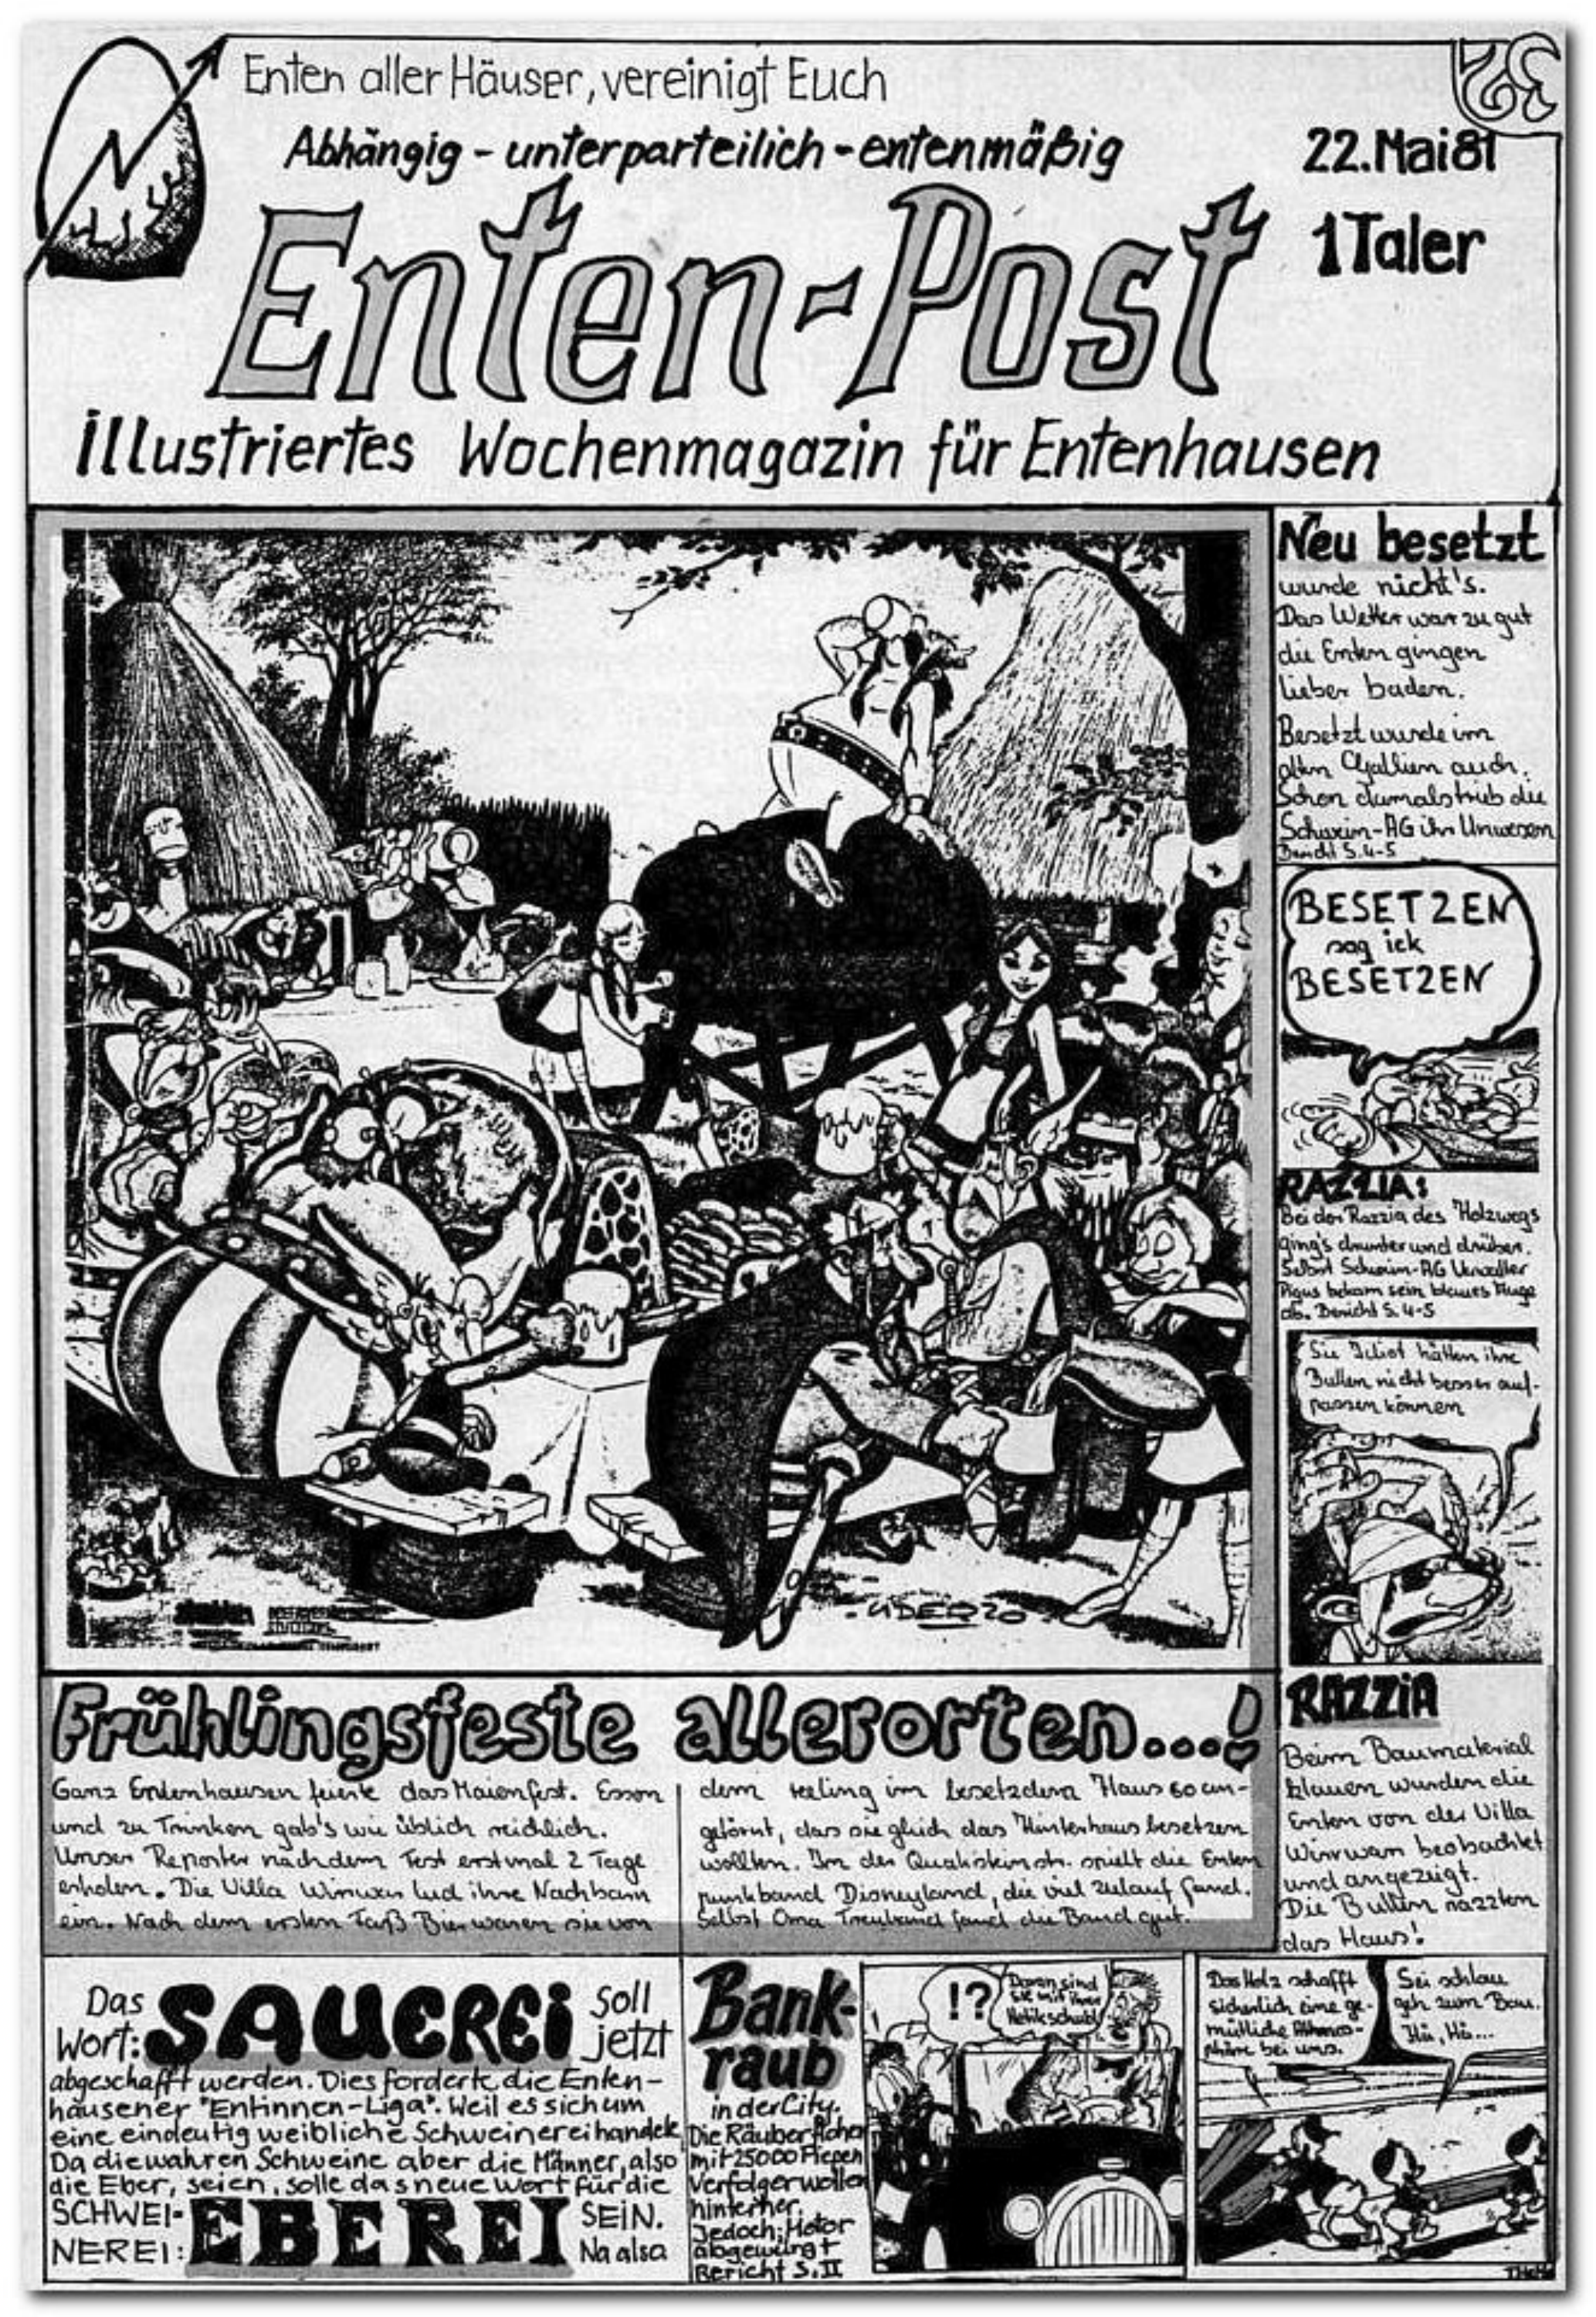 Enten aller Häuser, vereinigt Euch
Abhängig - unterparteilich - entenmäßig
22. Mai 81
1 Taler
Enten-Post
illustriertes Wochenmagazin für Entenhausen
Neu besetzt
wurde nicht's.
Das Wetter war zu gut
die Enten gingen
lieber baden.
Besetzt wurde im
alten Gallien auch.
Schon damals trieb die
Schwein-AG ihr Unwesen
Bericht S. 4-5
BESETZEN
sag ick
BESETZEN
RAZZIA:
Bei der Razzia des Holzwegs
ging's drunter und drüber.
Selbst Schwein-AG Verwalter
bekam sein blaues Auge
ab. Bericht S. 4-5
Sie Idiot hätten ihre
Bullen nicht besser auf-
passen können
UDERZO
Frühlingsfeste allerorten...!
Ganz Entenhausen feierte das Maienfest. Essen
und zu Trinken gab's wie üblich reichlich.
Unser Reporter nach dem Fest erstmal 2 Tage
erholen. Die Villa Wirrwarr lud ihre Nachbarn
ein. Nach dem ersten Faß Bier waren sie von
dem feeling im besetzdem Haus so an-
getörnt, das sie gleich das Hinterhaus besetzen
wollten. In der spielt die Enten
punkband Disneyland, die viel Zulauf fand.
Selbst Oma fand die Band gut.
RAZZiA
Beim Baumaterial
klauen wurden die
Enten von der Villa
Wirrwarr beobachtet
und angezeigt.
Die Bullen razzten
das Haus!
Das
Wort: SAUEREi soll
jetzt
abgeschafft werden. Dies forderte die Enten-
hausener "Entinnen-Liga". Weil es sich um
eine eindeutig weibliche Schweinerei handelt.
Da die wahren Schweine aber die Männer, also
die Eber, seien, solle das neue Wort für die
SCHWEI-
NEREI: EBEREI SEIN.
Na also
Bank-
raub
in der City.
Die Räuber flohen
mit 25000 Piepen
Verfolger wollen
hinterher.
Jedoch: Motor
abgewürgt
Bericht S. II
!?
Daran sind
sie mit ihrer
Hektik schuld
Das Holz schafft
sicherlich eine ge-
mütliche Atmos-
phäre bei uns.
Sei schlau
geh zum Bau.
Hü, Hü...